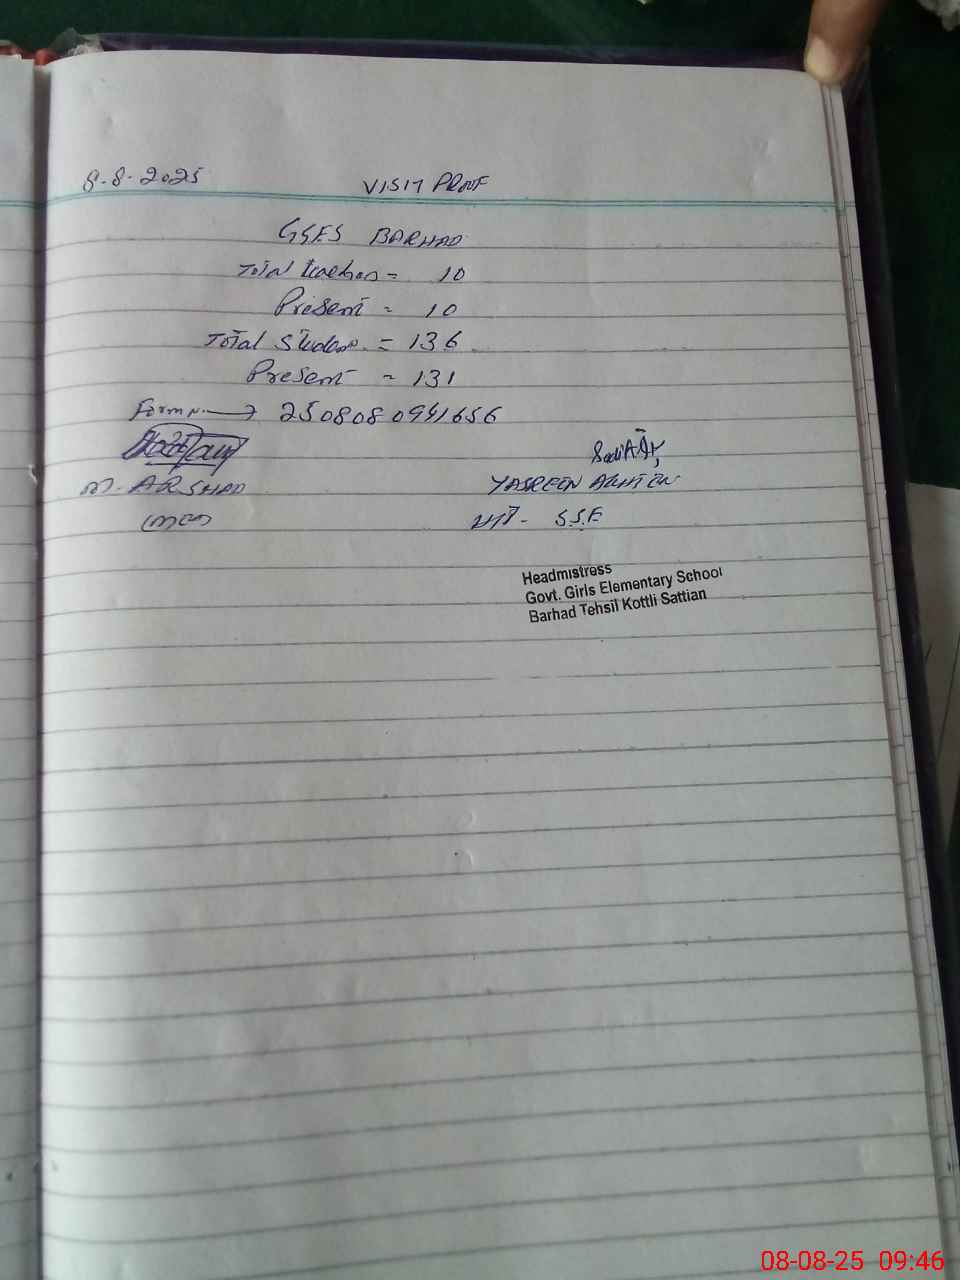 8-8-2025 VISIT PROOF
GGES BARHAD
Total teachers = 10
Present = 10
Total Students = 136
Present = 131
Form No. → 2508080941656
M. ARSHAD
YASREEN AKHTER
S.S.E
Headmistress
Govt. Girls Elementary School
Barhad Tehsil Kottli Sattian
08-08-25 09:46